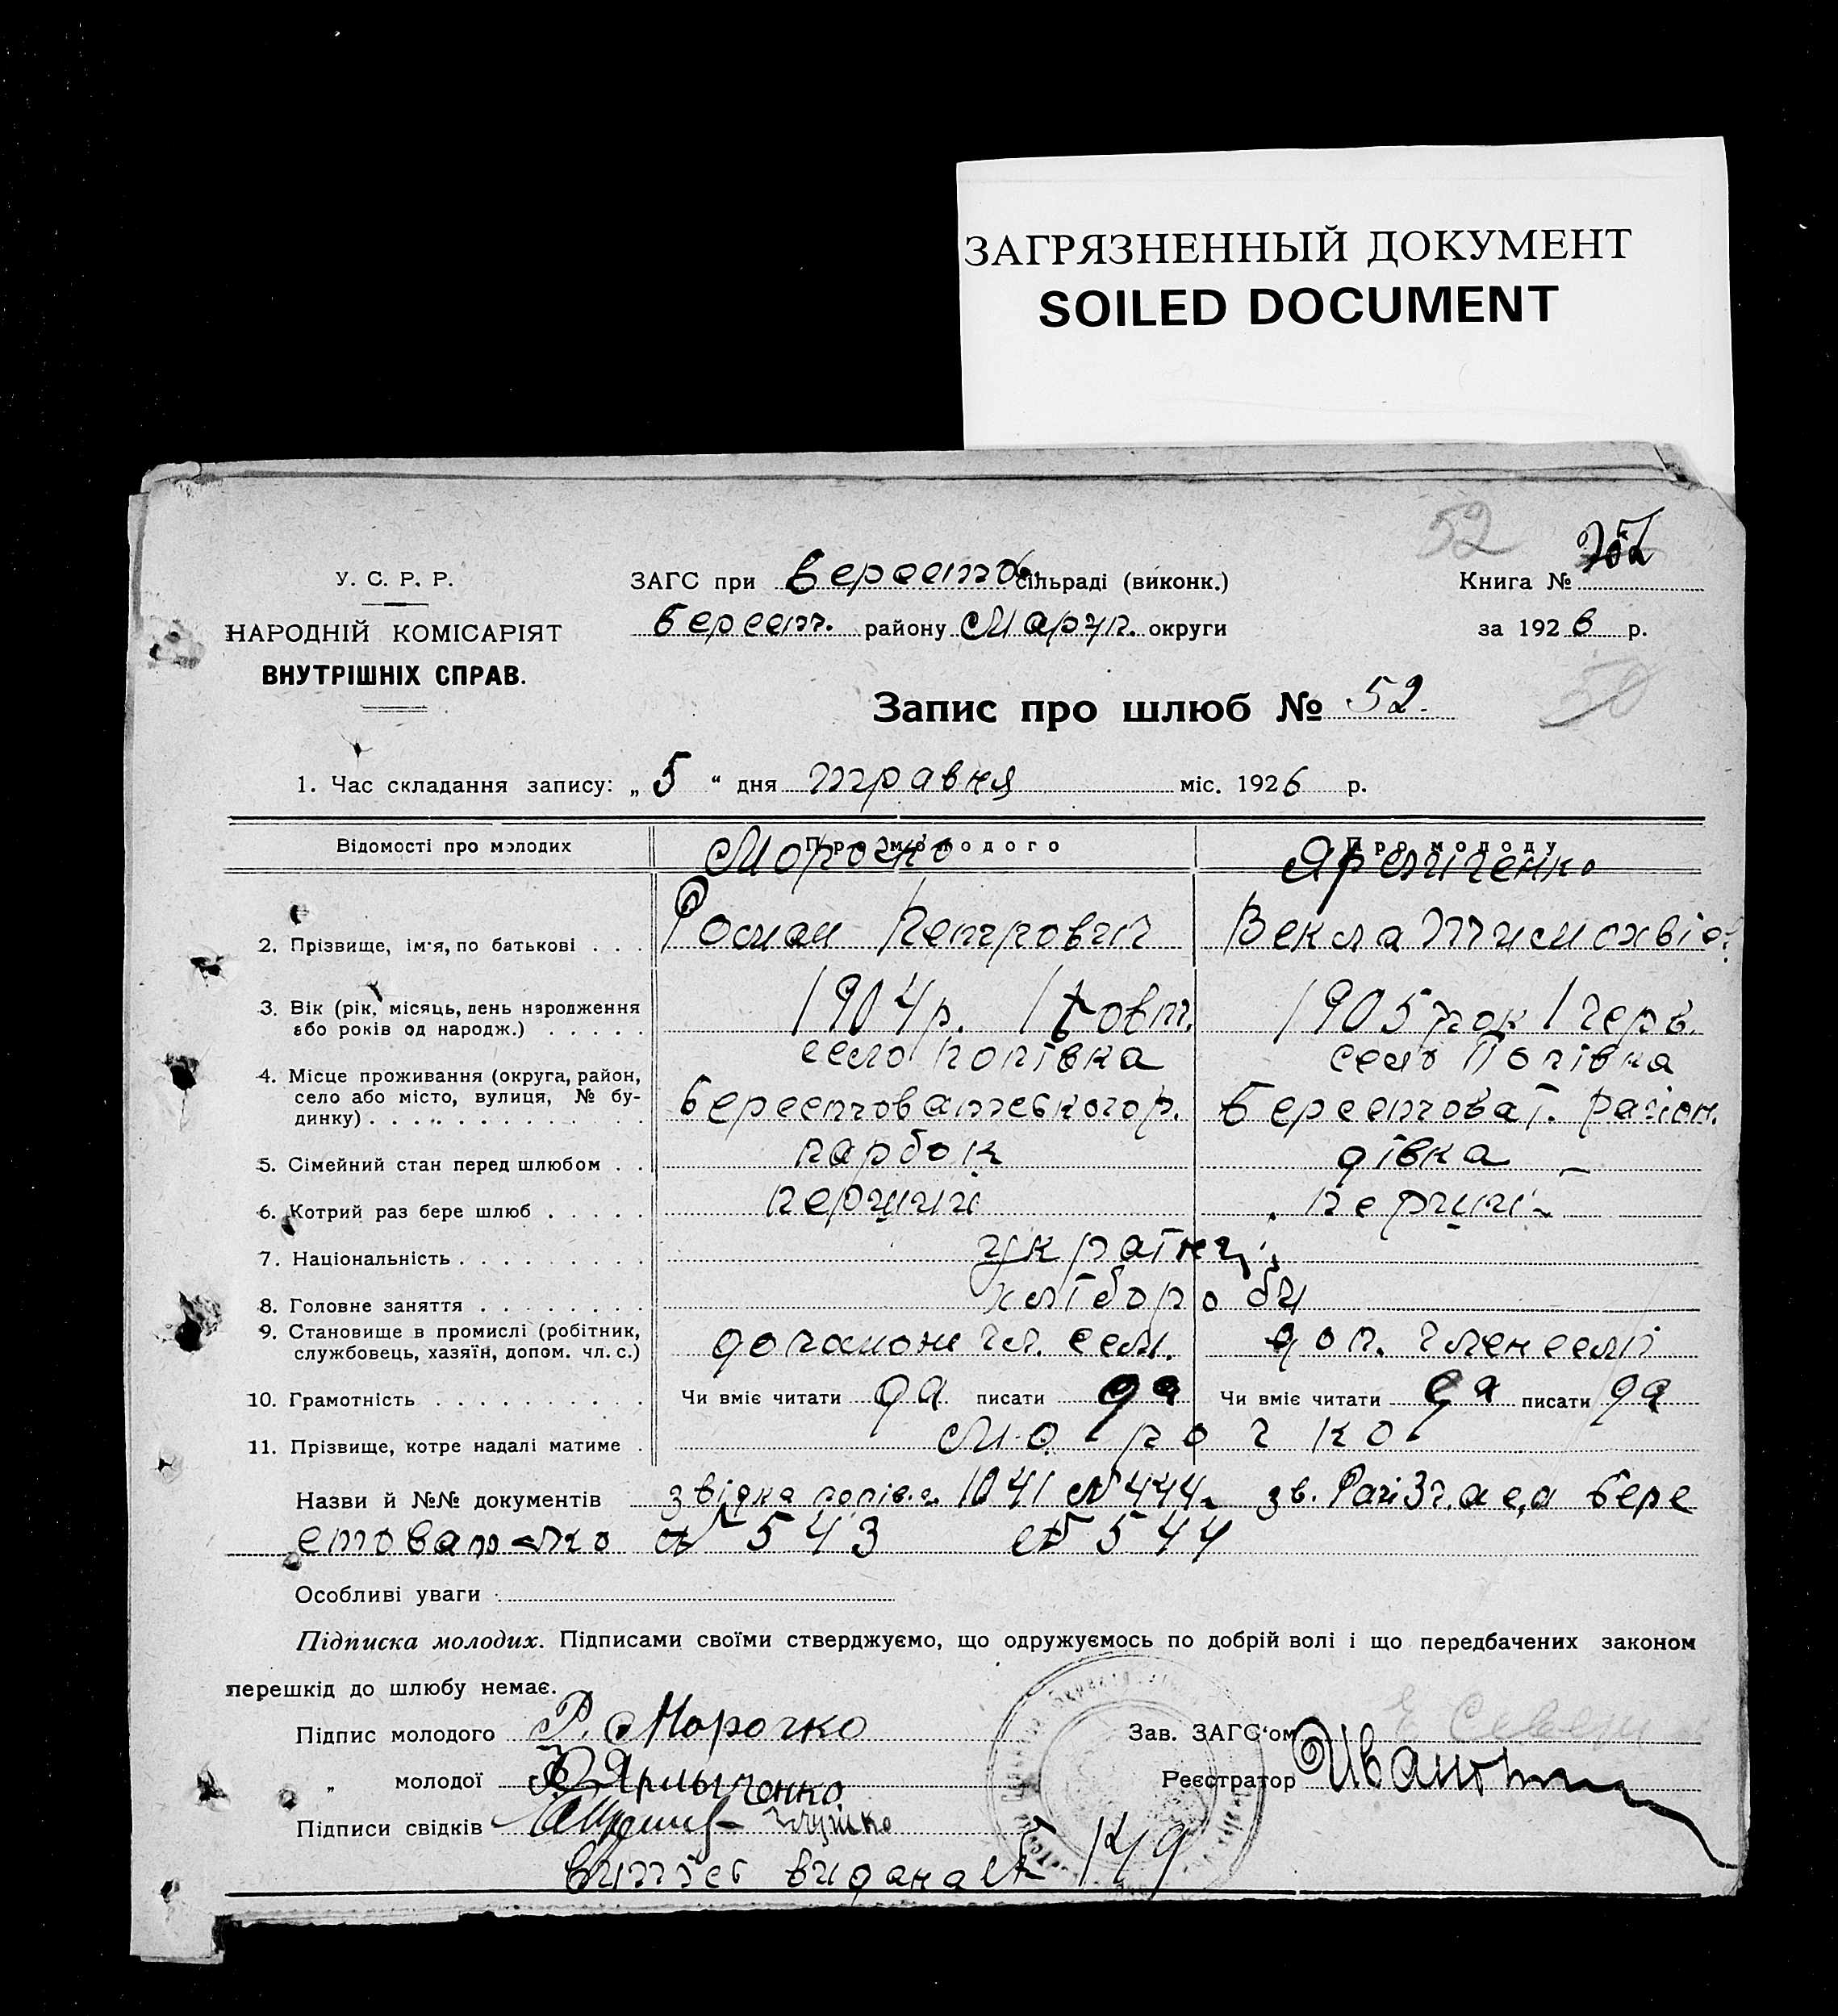 ЗАГРЯЗНЕННЫЙ ДОКУМЕНТ
SOILED DOCUMENT
52
У. С. Р. Р.
НАРОДНІЙ КОМІСАРІЯТ
ВНУТРІШНІХ СПРАВ.
ЗАГС при Берестов. сільраді (виконк.)
Берест. району Маріуп. округи
Книга №
за 1926 р.
50
Запис про шлюб № 52.
1. Час складання запису: „ 5 “ дня травня міс. 1926 р.
Відомості про молодих Про молодого Про молоду
Морочко
2. Прізвище, ім'я, по батькові . . . Роман Петрович Векла
3. Вік (рік, місяць, день народження або років од народж.) . . . . . 1904 р. 1 жовт. 1905 рок 1 черв.
село Попівка село Попівка
4. Місце проживання (округа, район, село або місто, вулиця, № будинку) . . . Берестоватського р. Берестоват. район.
5. Сімейний стан перед шлюбом . . парбок дівка
6. Котрий раз бере шлюб . . . . . перший перший
7. Національність . . . . . . . . українці
8. Головне заняття . . . . . . . хлібороби
9. Становище в промислі (робітник, службовець, хазяїн, допом. чл. с.) чл. сем. доп. член семї
10. Грамотність . . . . . . . . . Чи вміє читати да писати да Чи вміє читати да писати да
11. Прізвище, котре надалі матиме . Морочко
Назви й №№ документів звідка попів. 1041 № 444 зв. Бере
№ 543 № 544
Особливі уваги
Підписка молодих. Підписами своїми стверджуємо, що одружуємось по добрій волі і що передбачених законом
перешкід до шлюбу немає.
Підпис молодого Р. Морочко Зав. ЗАГС'ом
„ молодої Ярмыченко Реєстратор
Підписи свідків
видана № 149